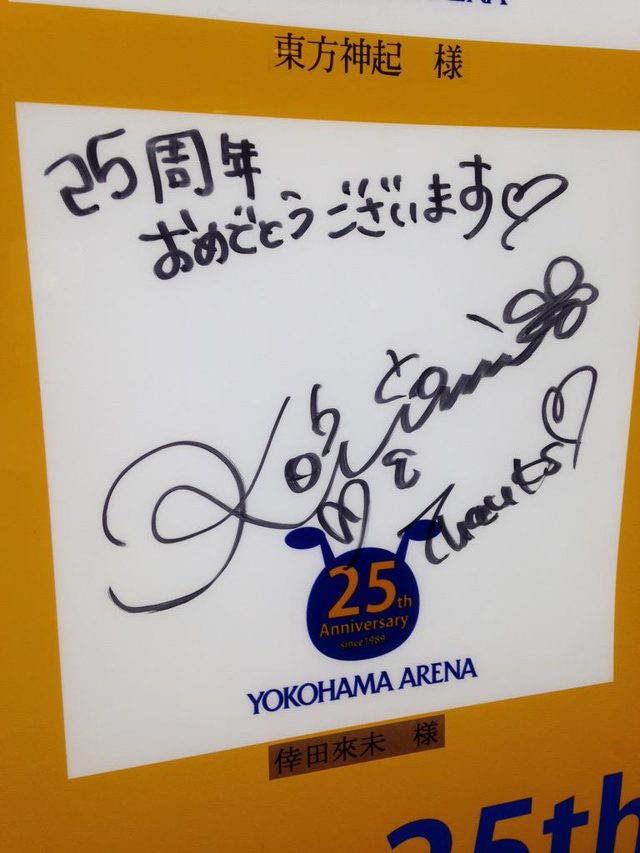 東方神起 様
25周年
おめでとうございます♡
Thanks♡
25th
Anniversary
since1989
YOKOHAMA ARENA
倖田來未 様
25th